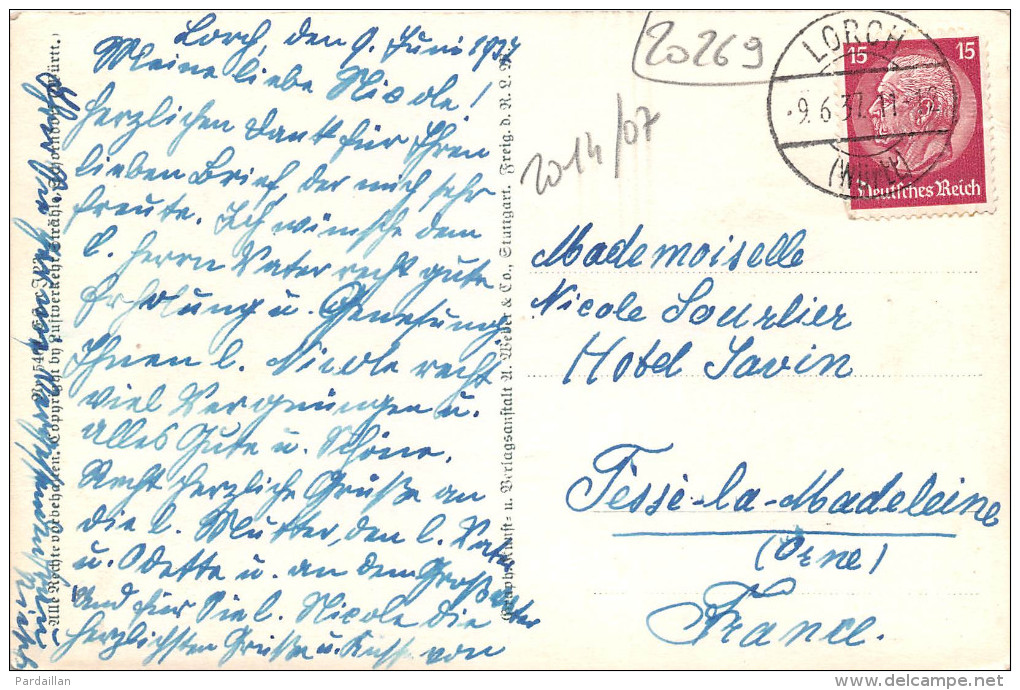 Lorch, den 9. Juni 1937
Meine liebe Nicole!
Herzlichen Dank für Ihren
lieben Brief der mich sehr
freute. Ich wünsche dem
l. Herrn Vater recht gute
Erholung u. Genesung,
Ihnen l. Nicole recht
viel Vergnüngen u.
alles Gute u. Schöne.
Recht herzliche Grüße an
die l. Mutter, den l. Vater
u. Odette u. an den Großvater
und für Sie l. Nicole die
herzlichsten Grüße u. Kuss von
Alle Rechte vorbehalten. Copyright by Luftverkehr Strähle, Schorndorf, Württ.
Graph. Kunst- u. Verlagsanstalt A. Weber & Co., Stuttgart. Freig. d. R. L. M.
20269
2014/07
LORCH
-9.6.37.11-12
(Württ)
15 15
Deutsches Reich
Mademoiselle
Nicole Sourlier
Hotel Savin
Tessé-la-Madeleine
(Orne)
France.
Pardaillan
delcampe.net